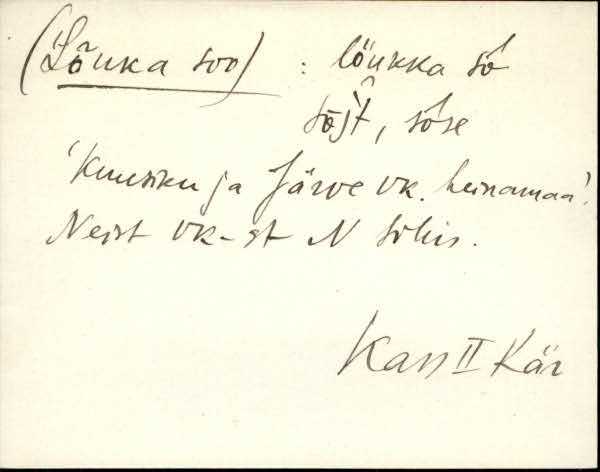 (Lõuka soo) : lõukka só
sōjt, sóse
'Kuusiku ja Järve vk. heinamaa'.
Neist vk-st N sihis.
Kass II Kär